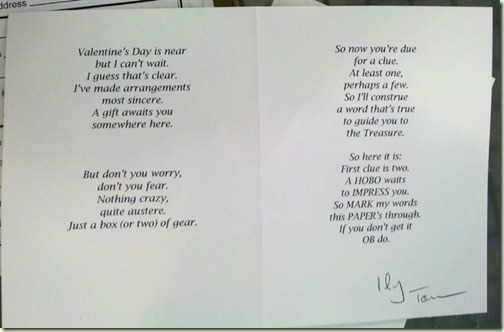 ddress
Valentine's Day is near
but I can't wait.
I guess that's clear.
I've made arrangements
most sincere.
A gift awaits you
somewhere here.
But don't you worry,
don't you fear.
Nothing crazy,
quite austere.
Just a box (or two) of gear.
So now you're due
for a clue.
At least one,
perhaps a few.
So I'll construe
a word that's true
to guide you to
the Treasure.
So here it is:
First clue is two.
A HOBO waits
to IMPRESS you.
So MARK my words
this PAPER's through.
If you don't get it
OB do.
Ily
Tom